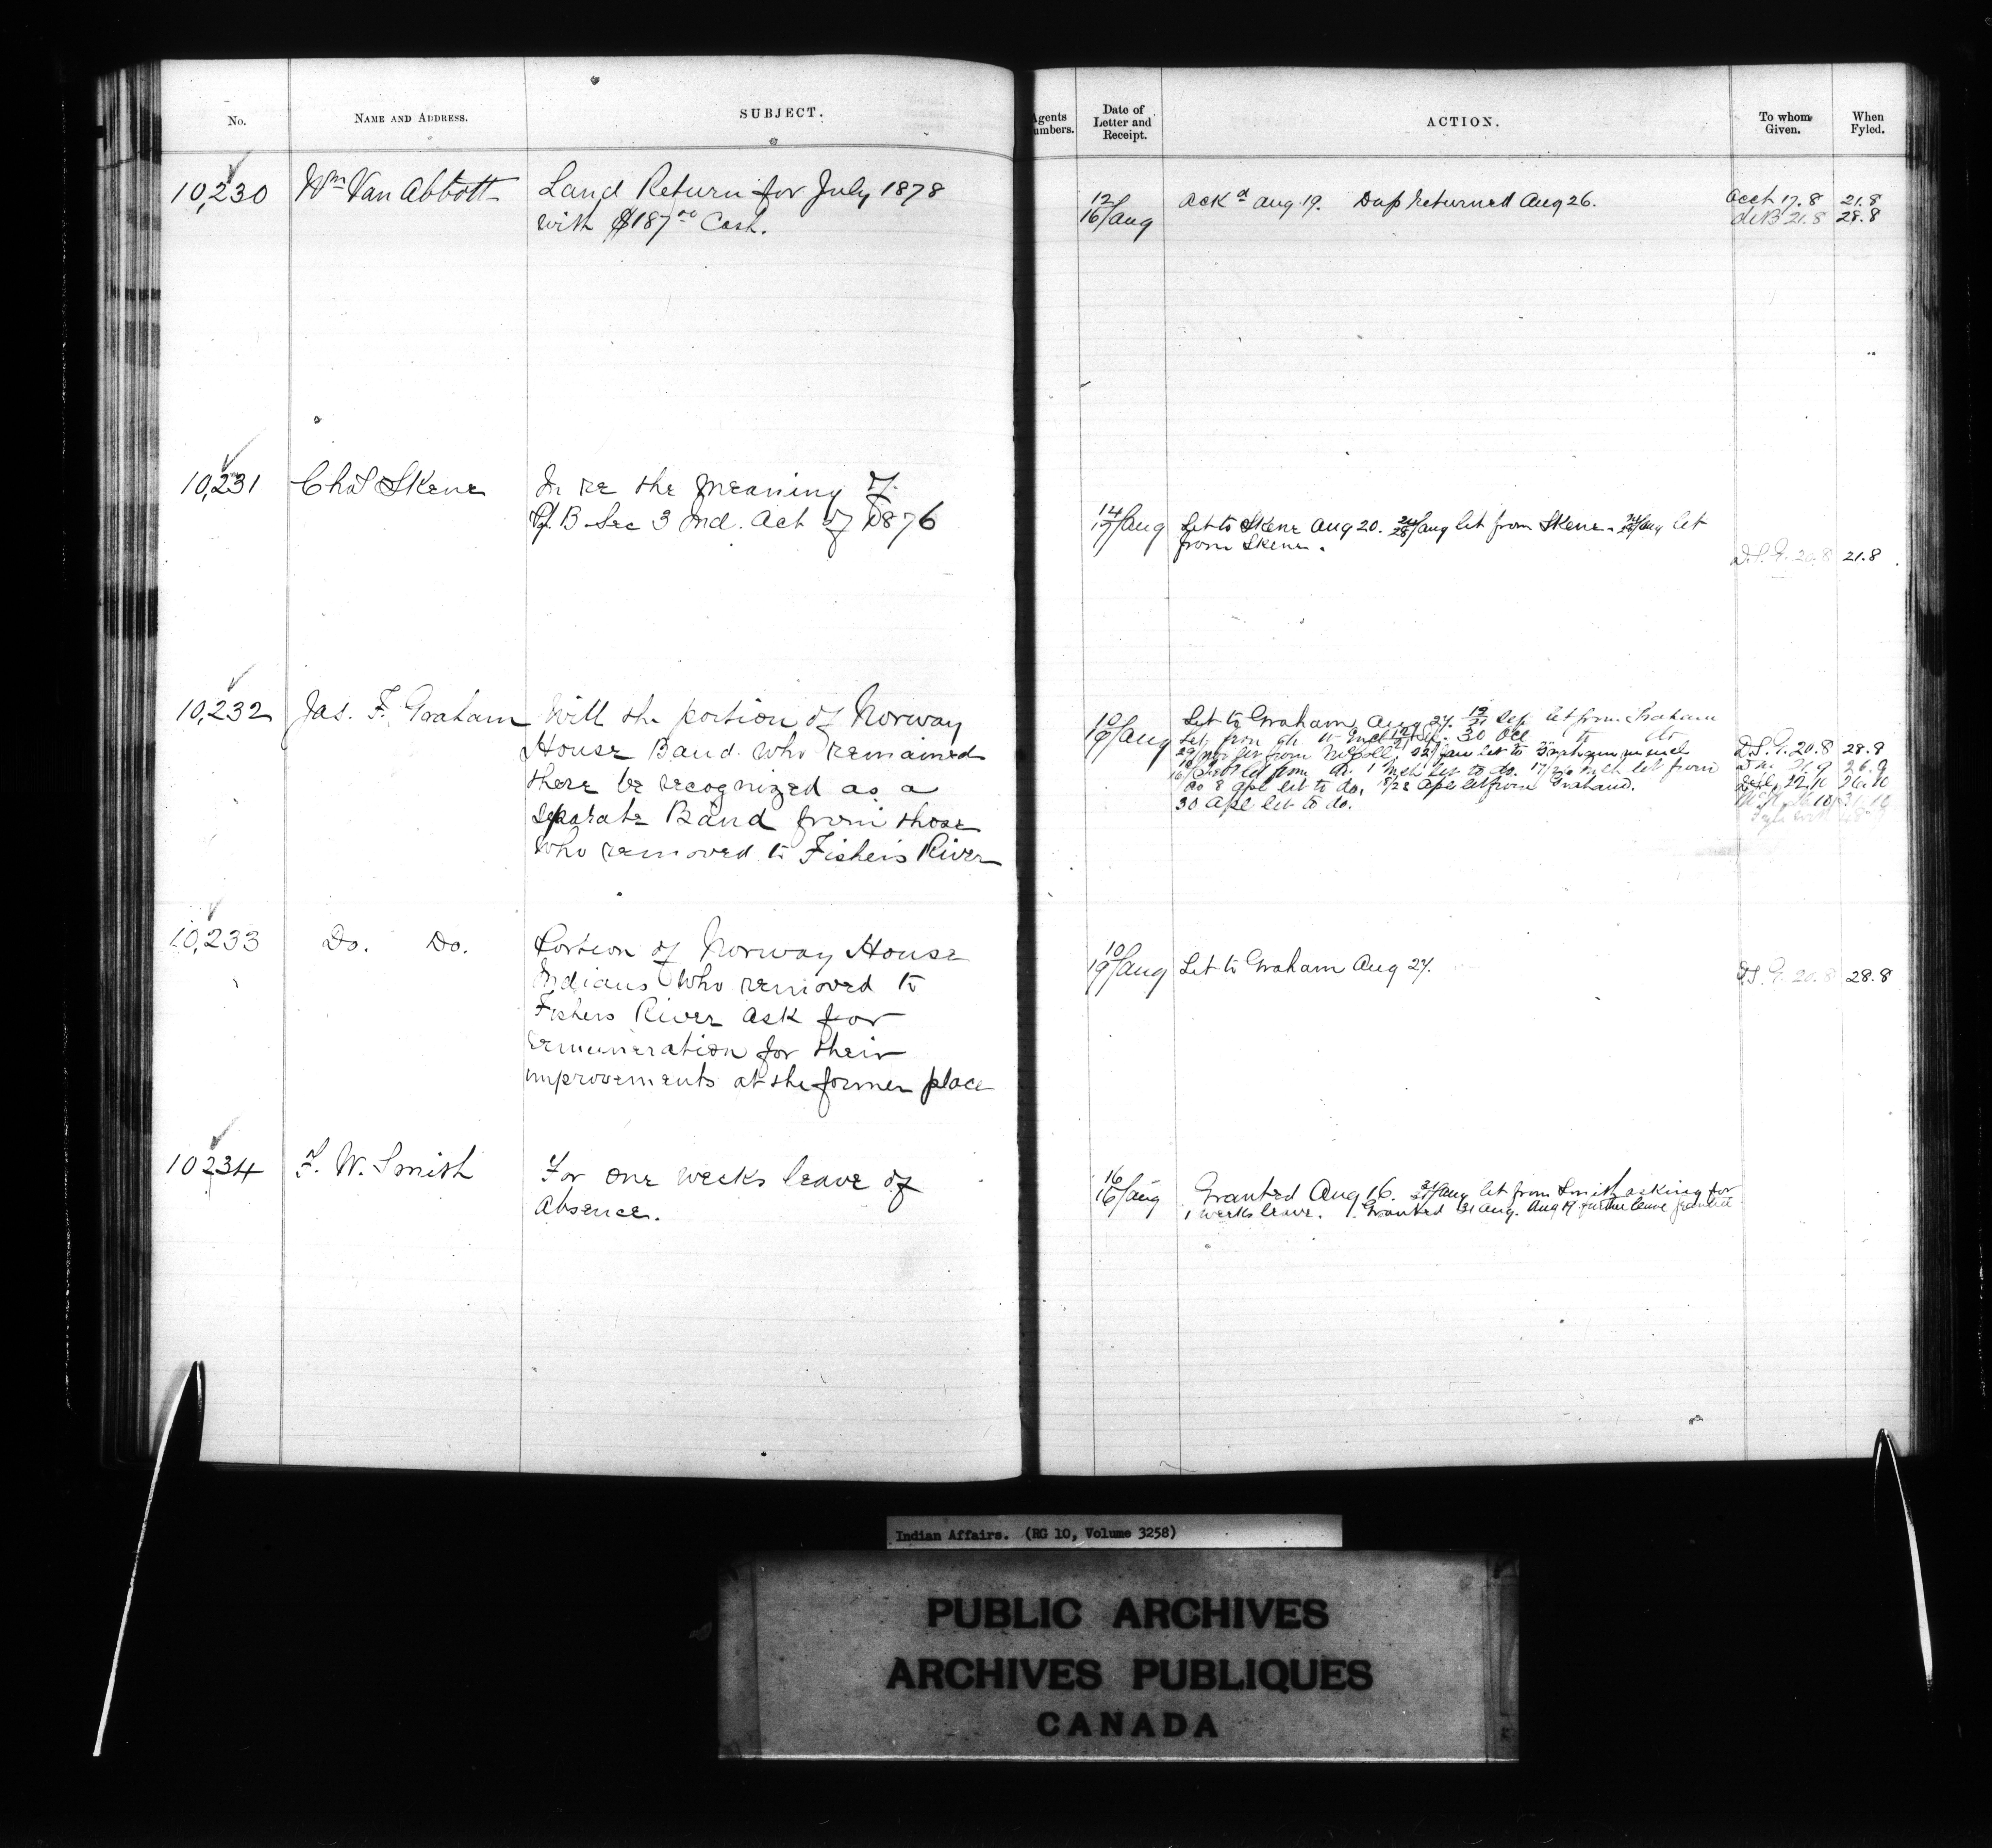 No.
NAME AND ADDRESS.
SUBJECT.
Agents
umbers.
Date of
Letter and
Receipt.
ACTION.
To whom
Given.
When
Fyled.
10,230
Wm Van Abbott
Land Return for July 1878
with $187.00 Cash.
12
16/Aug
Ackd Aug. 19. Dup Returned Aug 26.
Acct 17.8 21.8
21.8 28.8
10,231
Chas Skene
In re the meaning of
B Sec 3 Ind. Act of 1876
14
17/Aug
Let to Skene Aug 20. Aug let from Skene. Aug let
from Skene.
D.S.G. 20.8 21.8
10,232
Jas. F. Graham
Will the portion of Norway
House Band who remained
there be recognized as a
separate Band from those
who removed to Fishers River
10
19/Aug
Let to Graham Aug 27. Sep let from Graham
30 Oct to do
let from
do 8 Apl let to do. Apl let from Graham.
30 Apl let to do.
D.S.G. 20.8 28.8
26.9
10,233
Do. Do.
Portion of Norway House
Indians who removed to
Fishers River ask for
remuneration for their
improvements at the former place
10
19/Aug
Let to Graham Aug 27.
D.S.G. 20.8 28.8
10234
F. W. Smith
For one weeks leave of
absence.
16
16/Aug
Granted Aug 16. Aug let from Smith asking for
1 weeks leave. Granted 31 Aug. Aug 17 further leave granted
Indian Affairs. (RG 10, Volume 3258)
PUBLIC ARCHIVES
ARCHIVES PUBLIQUES
CANADA